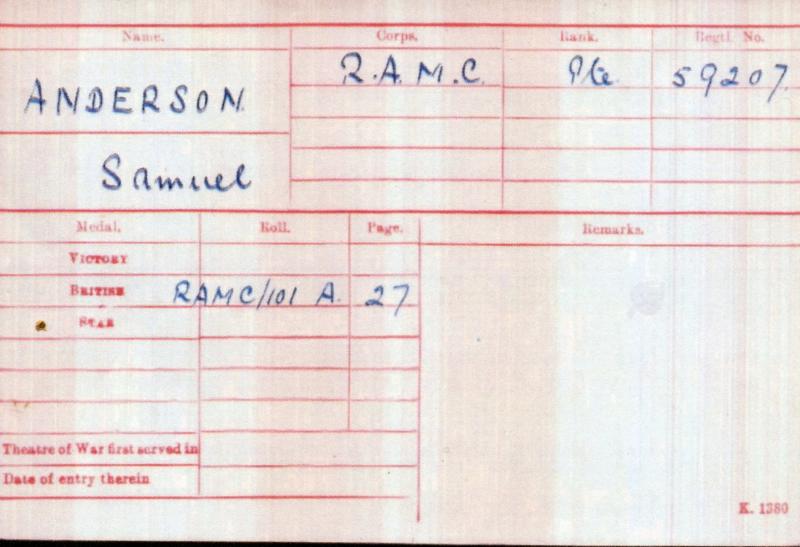 Name. Corps. Rank. Regtl. No.
ANDERSON R.A.M.C. Pte. 59207.
Samuel
Medal. Roll. Page. Remarks.
VICTORY
BRITISH RAMC/101 A. 27
STAR
Theatre of War first served in
Date of entry therein
K. 1380